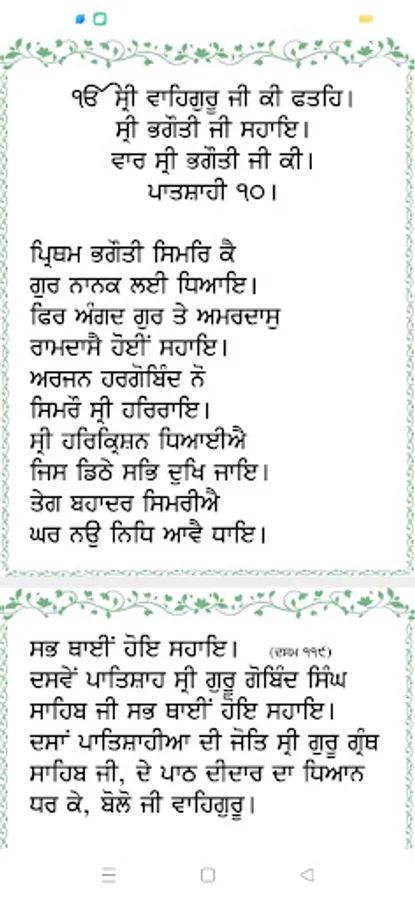 ੴ ਸ੍ਰੀ ਵਾਹਿਗੁਰੂ ਜੀ ਕੀ ਫਤਹਿ।
ਸ੍ਰੀ ਭਗੌਤੀ ਜੀ ਸਹਾਇ।
ਵਾਰ ਸ੍ਰੀ ਭਗੌਤੀ ਜੀ ਕੀ।
ਪਾਤਸ਼ਾਹੀ ੧੦।
ਪ੍ਰਿਥਮ ਭਗੌਤੀ ਸਿਮਰਿ ਕੈ
ਗੁਰ ਨਾਨਕ ਲਈ ਧਿਆਇ।
ਫਿਰ ਅੰਗਦ ਗੁਰ ਤੇ ਅਮਰਦਾਸੁ
ਰਾਮਦਾਸੈ ਹੋਈਂ ਸਹਾਇ।
ਅਰਜਨ ਹਰਗੋਬਿੰਦ ਨੋ
ਸਿਮਰੌ ਸ੍ਰੀ ਹਰਿਰਾਇ।
ਸ੍ਰੀ ਹਰਿਕ੍ਰਿਸ਼ਨ ਧਿਆਈਐ
ਜਿਸ ਡਿਠੇ ਸਭਿ ਦੁਖਿ ਜਾਇ।
ਤੇਗ ਬਹਾਦਰ ਸਿਮਰੀਐ
ਘਰ ਨਉ ਨਿਧਿ ਆਵੈ ਧਾਇ।
ਸਭ ਥਾਈਂ ਹੋਇ ਸਹਾਇ। (ਦਸਮ ੧੧੯)
ਦਸਵੇਂ ਪਾਤਿਸ਼ਾਹ ਸ੍ਰੀ ਗੁਰੂ ਗੋਬਿੰਦ ਸਿੰਘ
ਸਾਹਿਬ ਜੀ ਸਭ ਥਾਈਂ ਹੋਇ ਸਹਾਇ।
ਦਸਾਂ ਪਾਤਿਸ਼ਾਹੀਆ ਦੀ ਜੋਤਿ ਸ੍ਰੀ ਗੁਰੂ ਗ੍ਰੰਥ
ਸਾਹਿਬ ਜੀ, ਦੇ ਪਾਠ ਦੀਦਾਰ ਦਾ ਧਿਆਨ
ਧਰ ਕੇ, ਬੋਲੋ ਜੀ ਵਾਹਿਗੁਰੂ।